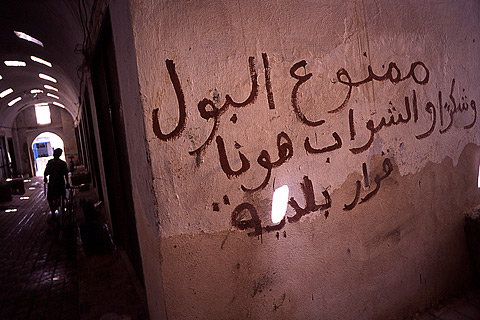 ممنوع البول
وشكرا و الشراب
هونا
قرار بلدية